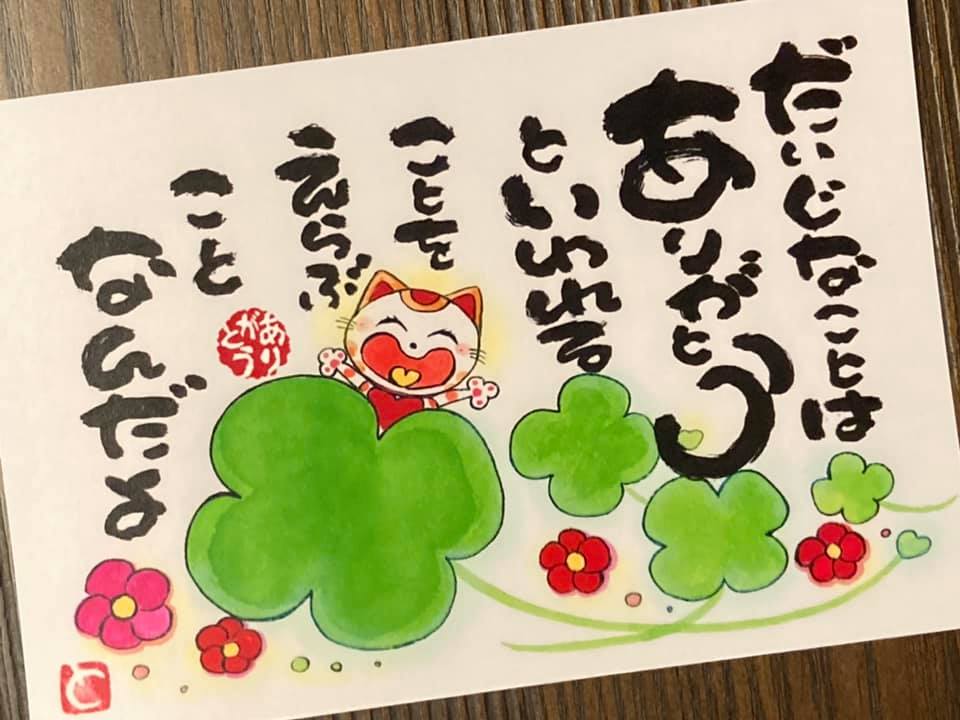 だいじなことは
ありがとう
といわれる
ことを
えらぶ
こと
なんだよ
ありがとう
と